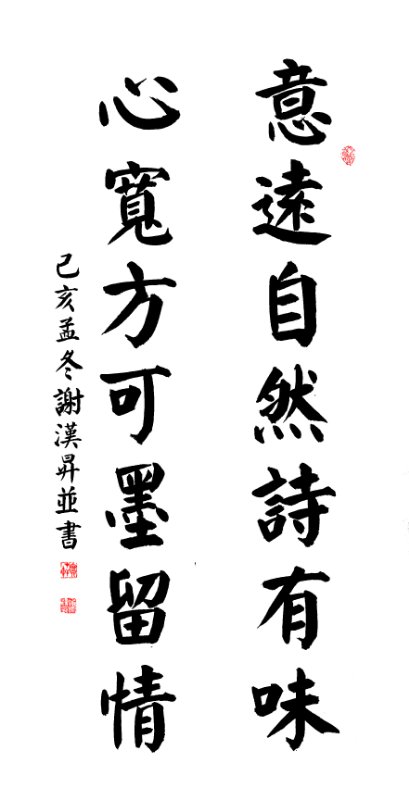 意遠自然詩有味
心寬方可墨留情
己亥孟冬謝漢昇並書